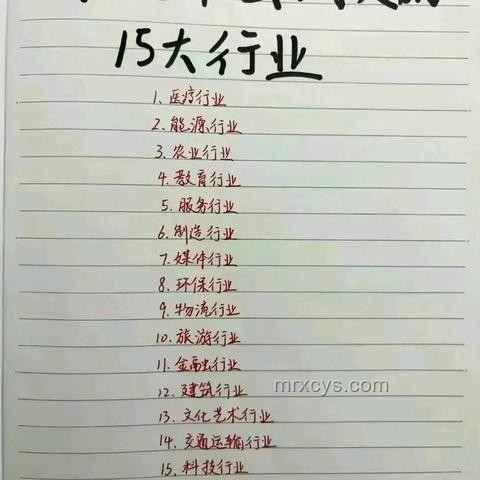 15大行业
1. 医疗行业
2. 能源行业
3. 农业行业
4. 教育行业
5. 服务行业
6. 制造行业
7. 媒体行业
8. 环保行业
9. 物流行业
10. 旅游行业
11. 金融行业
mrxcys.com
12. 建筑行业
13. 文化艺术行业
14. 交通运输行业
15. 科技行业